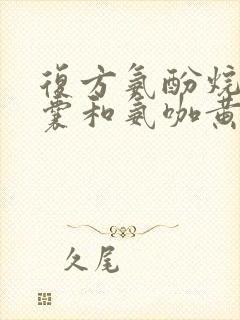 復方氨酚烷
囊和氨咖黄
久尾